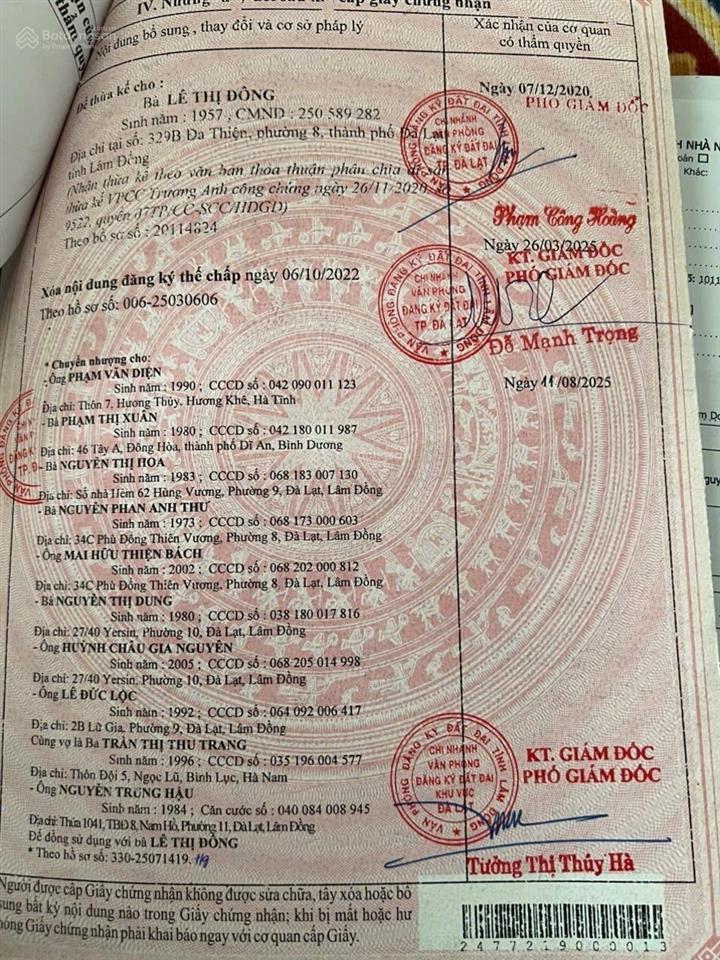 Nội dung bổ sung, thay đổi và cơ sở pháp lý
Xác nhận của cơ quan
có thẩm quyền
Để thừa kế cho :
Bà LÊ THỊ ĐÔNG
Sinh năm : 1957 , CMND : 250 589 282
Địa chỉ tại số: 329B Đa Thiện, phường 8, thành phố Đà Lạt
tỉnh Lâm Đồng
(Nhận thừa kế theo văn bản thỏa thuận phân chia di sản
thừa kế VPCC Trương Anh công chứng ngày 26/11-2020
9522, quyển 07TP/CC-SCC/HDGD)
Theo hồ sơ số : 20114824
Ngày 07/12/2020
PHÓ GIÁM ĐỐC
Phạm Công Hoàng
Xóa nội dung đăng ký thế chấp ngày 06/10/2022
Theo hồ sơ số: 006-25030606
Ngày 26/03/2025
KT. GIÁM ĐỐC
PHÓ GIÁM ĐỐC
Đỗ Mạnh Trọng
* Chuyển nhượng cho:
- Ông PHẠM VĂN DIỆN
Sinh năm : 1990 ; CCCD số : 042 090 011 123
Địa chỉ: Thôn 7, Hương Thủy, Hương Khê, Hà Tĩnh
- Bà PHẠM THỊ XUÂN
Sinh năm : 1980 ; CCCD số : 042 180 011 987
Địa chỉ: 46 Tây A, Đông Hòa, thành phố Dĩ An, Bình Dương
- Bà NGUYỄN THỊ HOA
Sinh năm : 1983 ; CCCD số : 068 183 007 130
Địa chỉ: Số nhà Hẻm 62 Hùng Vương, Phường 9, Đà Lạt, Lâm Đồng
- Bà NGUYỄN PHAN ANH THƯ
Sinh năm : 1973 ; CCCD số : 068 173 000 603
Địa chỉ: 34C Phù Đổng Thiên Vương, Phường 8, Đà Lạt, Lâm Đồng
- Ông MAI HỮU THIỆN BÁCH
Sinh năm : 2002 ; CCCD số : 068 202 000 812
Địa chỉ: 34C Phù Đổng Thiên Vương, Phường 8, Đà Lạt, Lâm Đồng
- Bà NGUYỄN THỊ DUNG
Sinh năm : 1980 ; CCCD số : 038 180 017 816
Địa chỉ: 27/40 Yersin, Phường 10, Đà Lạt, Lâm Đồng
- Ông HUỲNH CHÂU GIA NGUYÊN
Sinh năm : 2005 ; CCCD số : 068 205 014 998
Địa chỉ: 27/40 Yersin, Phường 10, Đà Lạt, Lâm Đồng
- Ông LÊ ĐỨC LỘC
Sinh năm : 1992 ; CCCD số : 064 092 006 417
Địa chỉ: 2B Lữ Gia, Phường 9, Đà Lạt, Lâm Đồng
Cùng vợ là Bà TRẦN THỊ THU TRANG
Sinh năm : 1996 ; CCCD số : 035 196 004 577
Địa chỉ: Thôn Đội 5, Ngọc Lũ, Bình Lục, Hà Nam
- Ông NGUYỄN TRUNG HẬU
Sinh năm : 1984 ; Căn cước số : 040 084 008 945
Địa chỉ: Thửa 1041, TBĐ 8, Nam Hồ, Phường 11, Đà Lạt, Lâm Đồng
Để đồng sử dụng với bà LÊ THỊ ĐÔNG
* Theo hồ sơ số: 330-25071419.
Ngày 11/08/2025
KT. GIÁM ĐỐC
PHÓ GIÁM ĐỐC
Tưởng Thị Thúy Hà
VĂN PHÒNG ĐĂNG KÝ ĐẤT ĐAI TỈNH LÂM ĐỒNG
CHI NHÁNH
VĂN PHÒNG
ĐĂNG KÝ ĐẤT ĐAI
KHU VỰC
ĐÀ LẠT
VĂN PHÒNG ĐĂNG KÝ ĐẤT ĐAI TỈNH LÂM ĐỒNG
CHI NHÁNH
VĂN PHÒNG
ĐĂNG KÝ ĐẤT ĐAI
TP. ĐÀ LẠT
Người được cấp Giấy chứng nhận không được sửa chữa, tẩy xóa hoặc bổ
sung bất kỳ nội dung nào trong Giấy chứng nhận; khi bị mất hoặc hư
hỏng Giấy chứng nhận phải khai báo ngay với cơ quan cấp Giấy.
2477219000013